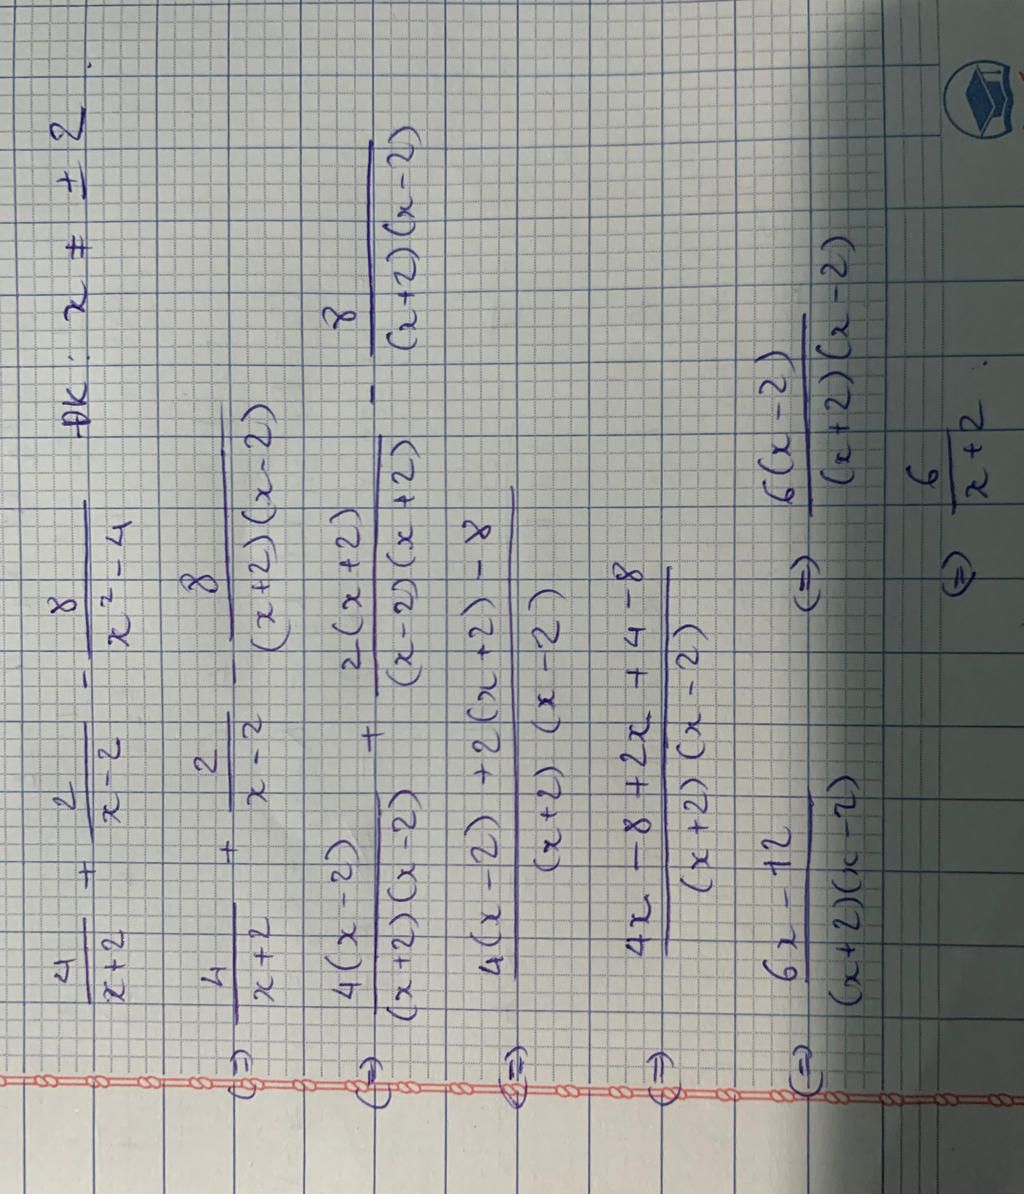 4/(x+2) + 2/(x-2) - 8/(x²-4) ĐK: x ≠ ± 2.
(=) 4/(x+2) + 2/(x-2) - 8/((x+2)(x-2))
(=) 4(x-2)/((x+2)(x-2)) + 2(x+2)/((x-2)(x+2)) - 8/((x+2)(x-2))
(=) (4(x-2) + 2(x+2) - 8)/((x+2)(x-2))
(=) (4x - 8 + 2x + 4 - 8)/((x+2)(x-2))
(=) (6x - 12)/((x+2)(x-2)) (=) 6(x-2)/((x+2)(x-2))
(=) 6/(x+2).